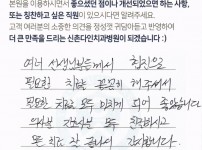 본원을 이용하시면서 좋으셨던 점이나 개선되었으면 하는 사항,
또는 칭찬하고 싶은 직원이 있으시다면 알려주세요.
고객 여러분의 소중한 의견을 정성껏 귀담아듣고 반영하여
더 큰 만족을 드리는 신촌다인치과병원이 되겠습니다 :)
여러 선생님분들께서 합심으로
필요한 치료 꼼꼼히 해주셔서
필요한 치료 모두 마치게 되어 좋았습니다
의사분 간호사분 모두 친절하시고
모든 치료 잘 끝나서 감사합니다.